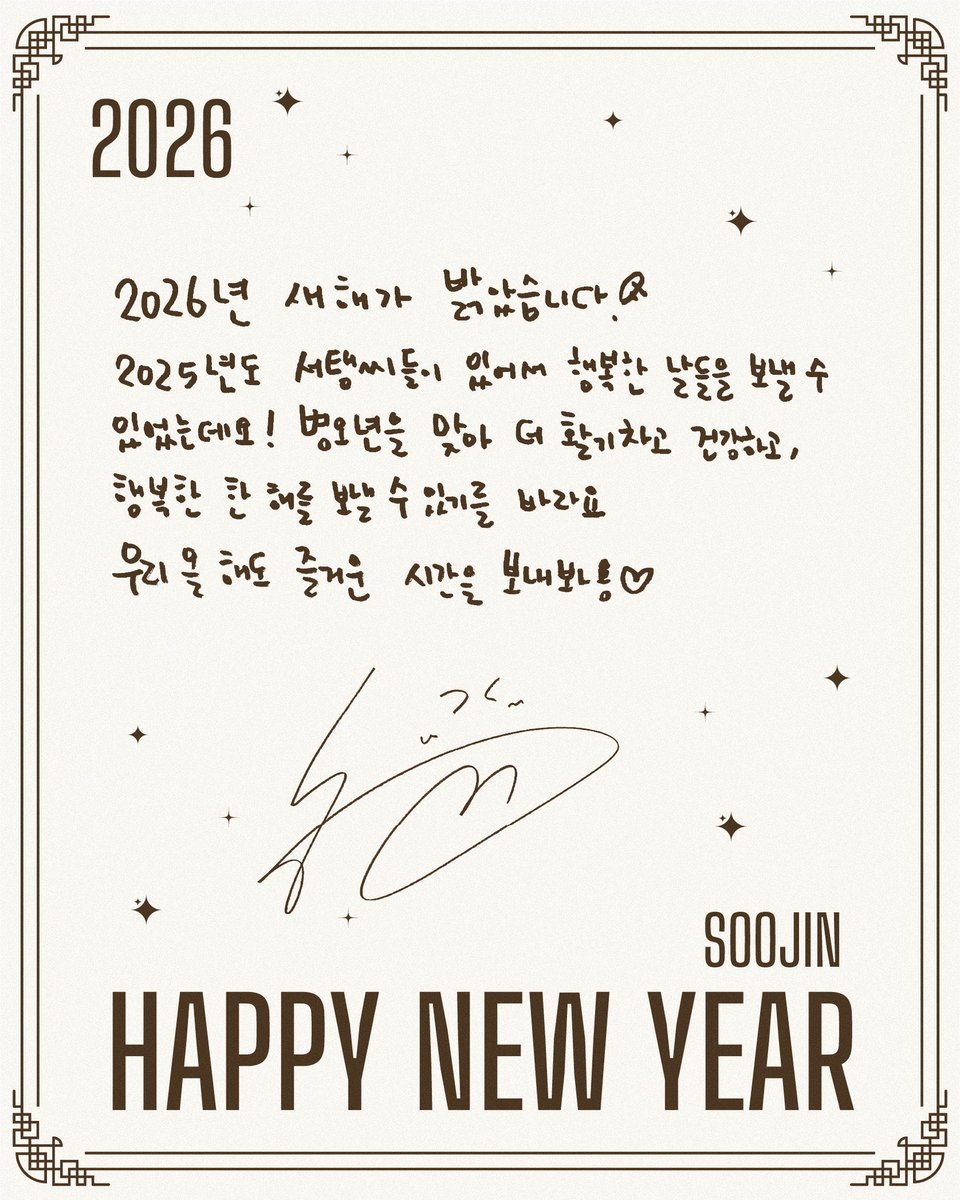 2026
2026년 새해가 밝았습니다!
2025년도 서탬씨들이 있어서 행복한 날들을 보낼 수
있었는데요! 병오년을 맞아 더 활기차고 건강하고,
행복한 한 해를 보낼 수 있기를 바라요
우리 올 해도 즐거운 시간을 보내보아용♡
SOOJIN
HAPPY NEW YEAR